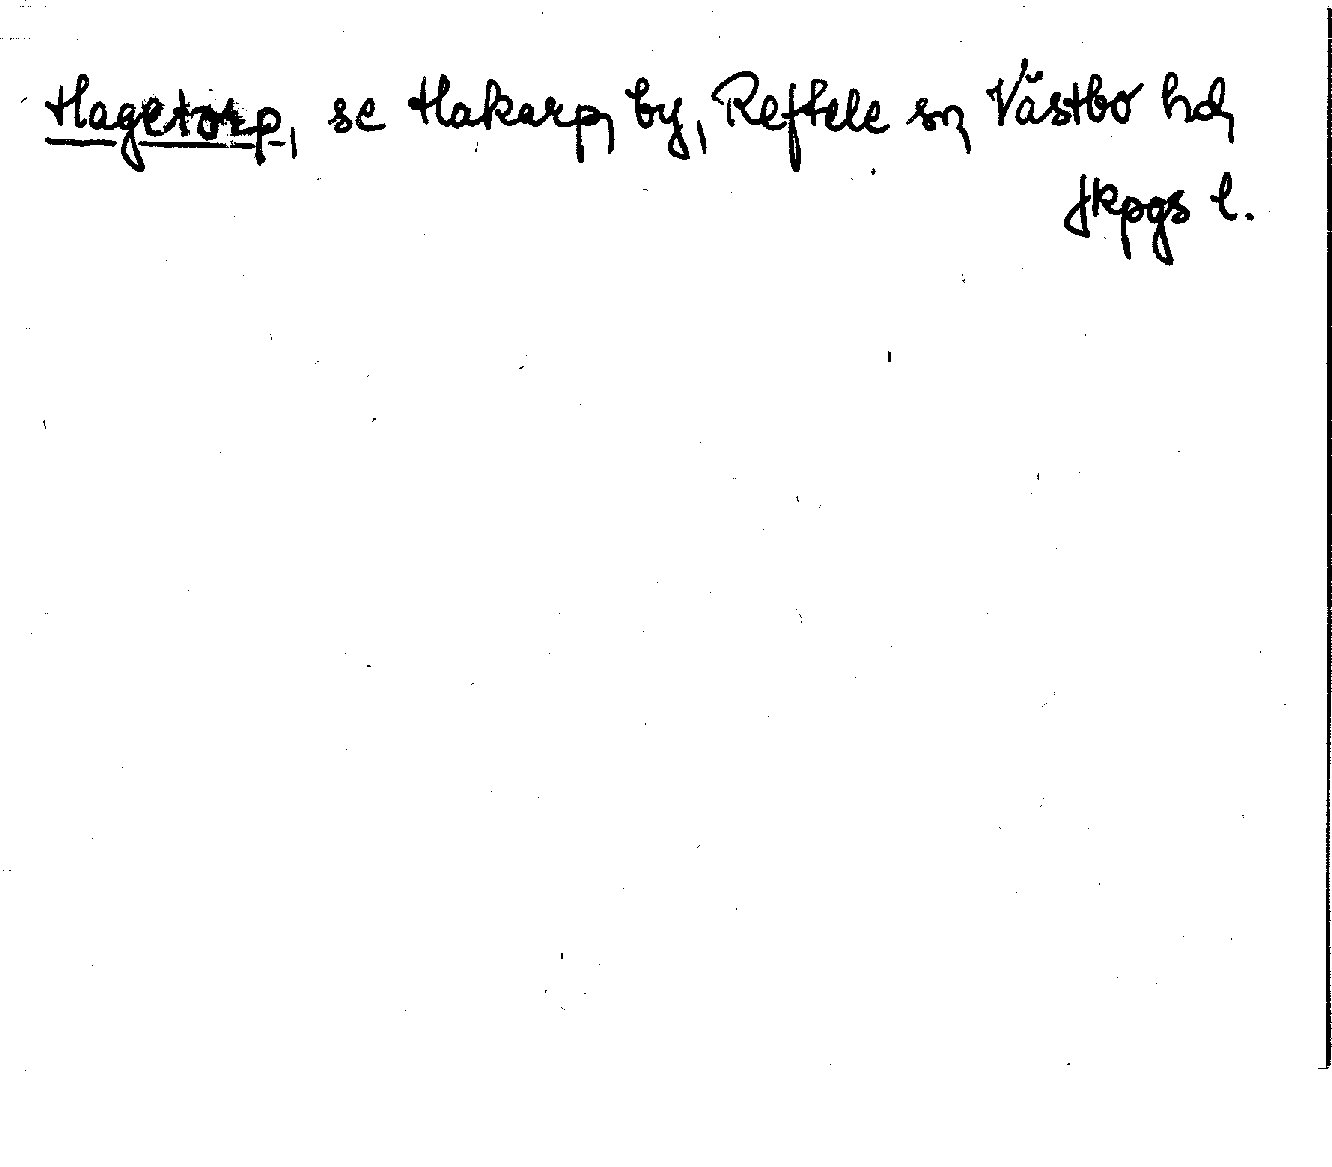 Hagetorp, se Hakarp, by, Reftele sn, Västbo hd,
Jkpgs l.